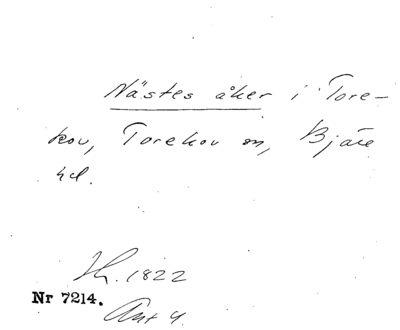 Nästes åker i Tore-
kov, Torekov sn, Bjäre
hd.
1822
Nr 7214.